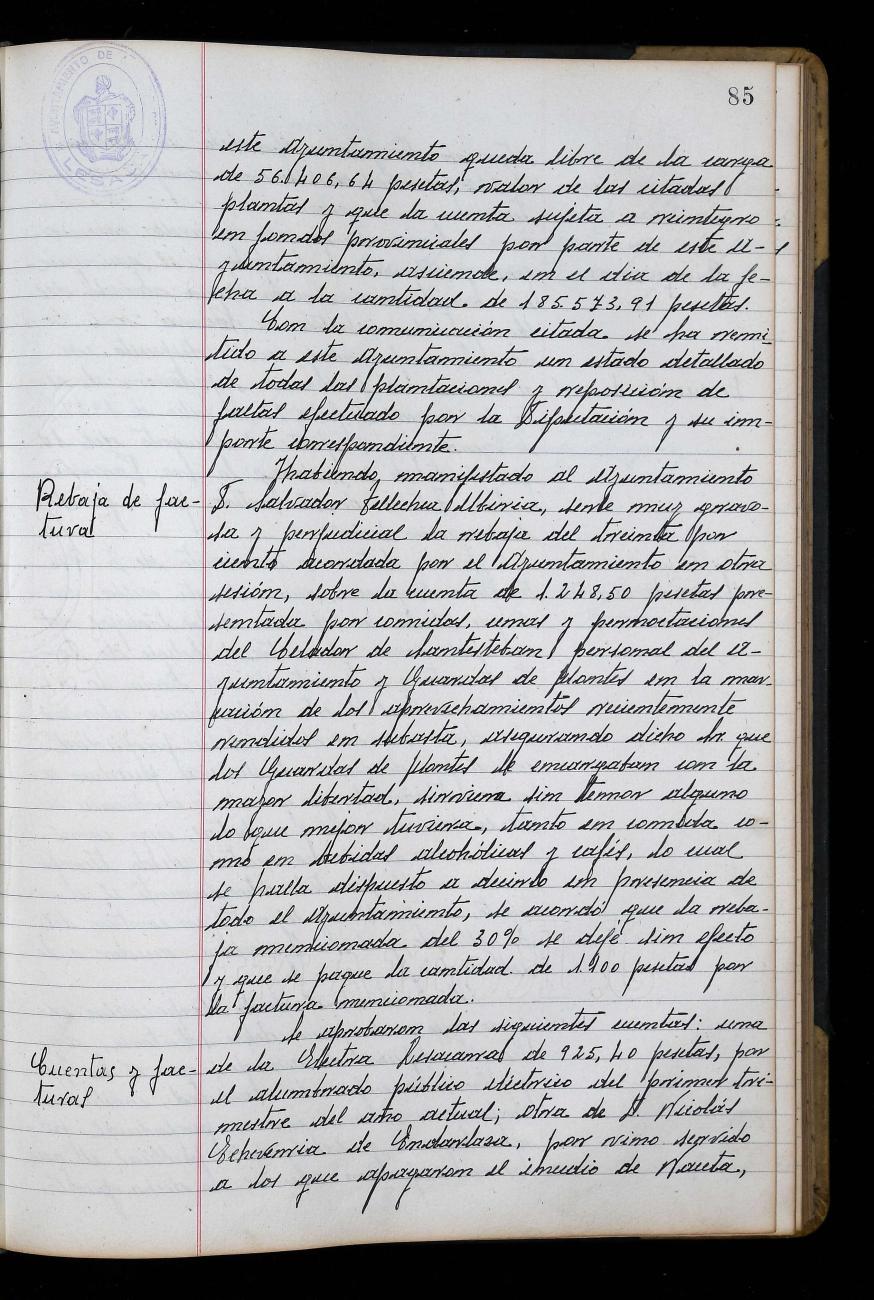 85
AYUNTAMIENTO DE
LESACA
este Ayuntamiento queda libre de la carga
de 56.406,64 pesetas, valor de las citadas
plantas y que la cuenta sujeta a reintegro
en fondos provinciales por parte de este A-
yuntamiento, asciende, en el dia de la fe-
cha a la cantidad de 185.573,91 pesetas.
Con la comunicación citada se ha remi-
tido a este Ayuntamiento un estado detallado
de todas las plantaciones y reposición de
faltas efectuado por la Diputación y su im-
porte correspondiente.
Rebaja de fac-
tura
Habiendo manifestado al Ayuntamiento
D. Salvador Tellechea Albiria, serle muy gravo-
sa y perjudicial la rebaja del treinta por
ciento acordada por el Ayuntamiento en otra
sesión, sobre la cuenta de 1.248,50 pesetas pre-
sentada por comidas, cenas y pernoctaciones
del Celador de Santesteban personal del A-
yuntamiento y Guardas de Montes en la mar-
cación de los aprovechamientos recientemente
vendidos en subasta, asegurando dicho Sr. que
los Guardas de Montes le encargaban con la
mayor libertad, sirviera sin temor alguno
lo que mejor tuviera, tanto en comida co-
mo en bebidas alcohólicas y cafés, lo cual
se halla dispuesto a decirlo en presencia de
todo el Ayuntamiento, se acordó que la reba-
ja mencionada del 30% se deje sin efecto
y que se pague la cantidad de 1.100 pesetas por
la factura mencionada.
Cuentas y fac-
turas
Se aprobaron las siguientes cuentas: una
de la Electra Lesacarra de 925,40 pesetas, por
el alumbrado público eléctrico del primer tri-
mestre del año actual; otra de D. Nicolás
Echeverria de Endarlaza, por vino servido
a los que apagaron el incendio de